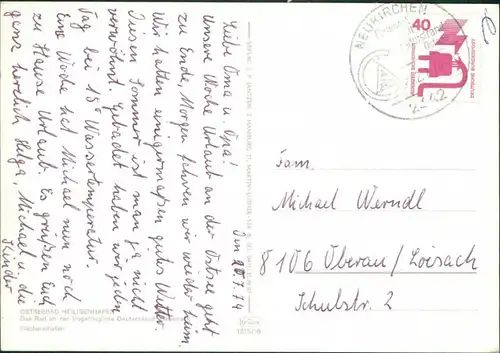 Den 20.7.74
Liebe Oma u. Opa!
Unsere Woche Urlaub an der Ostsee geht
zu Ende, Morgen fahren wir wieder heim.
Wir hatten einigermaßen gutes Wetter.
Diesen Sommer ist man ja nicht
verwöhnt. Gebadet haben wir jeden
Tag bei 15° Wassertemperatur.
Eine Woche hat Michael nun noch
zu Hause Urlaub. Es grüßen Euch
ganz herzlich Helga, Michael u. die
Kinder
OSTSEEBAD HEILIGENHAFEN
Das Bad an der Vogelfluglinie
Fischereihafen
Krüger
NEUKIRCHEN
40
DEUTSCHE BUNDESPOST
Fam.
Michael Werndl
8106 Oberau/Loisach
Schulstr. 2